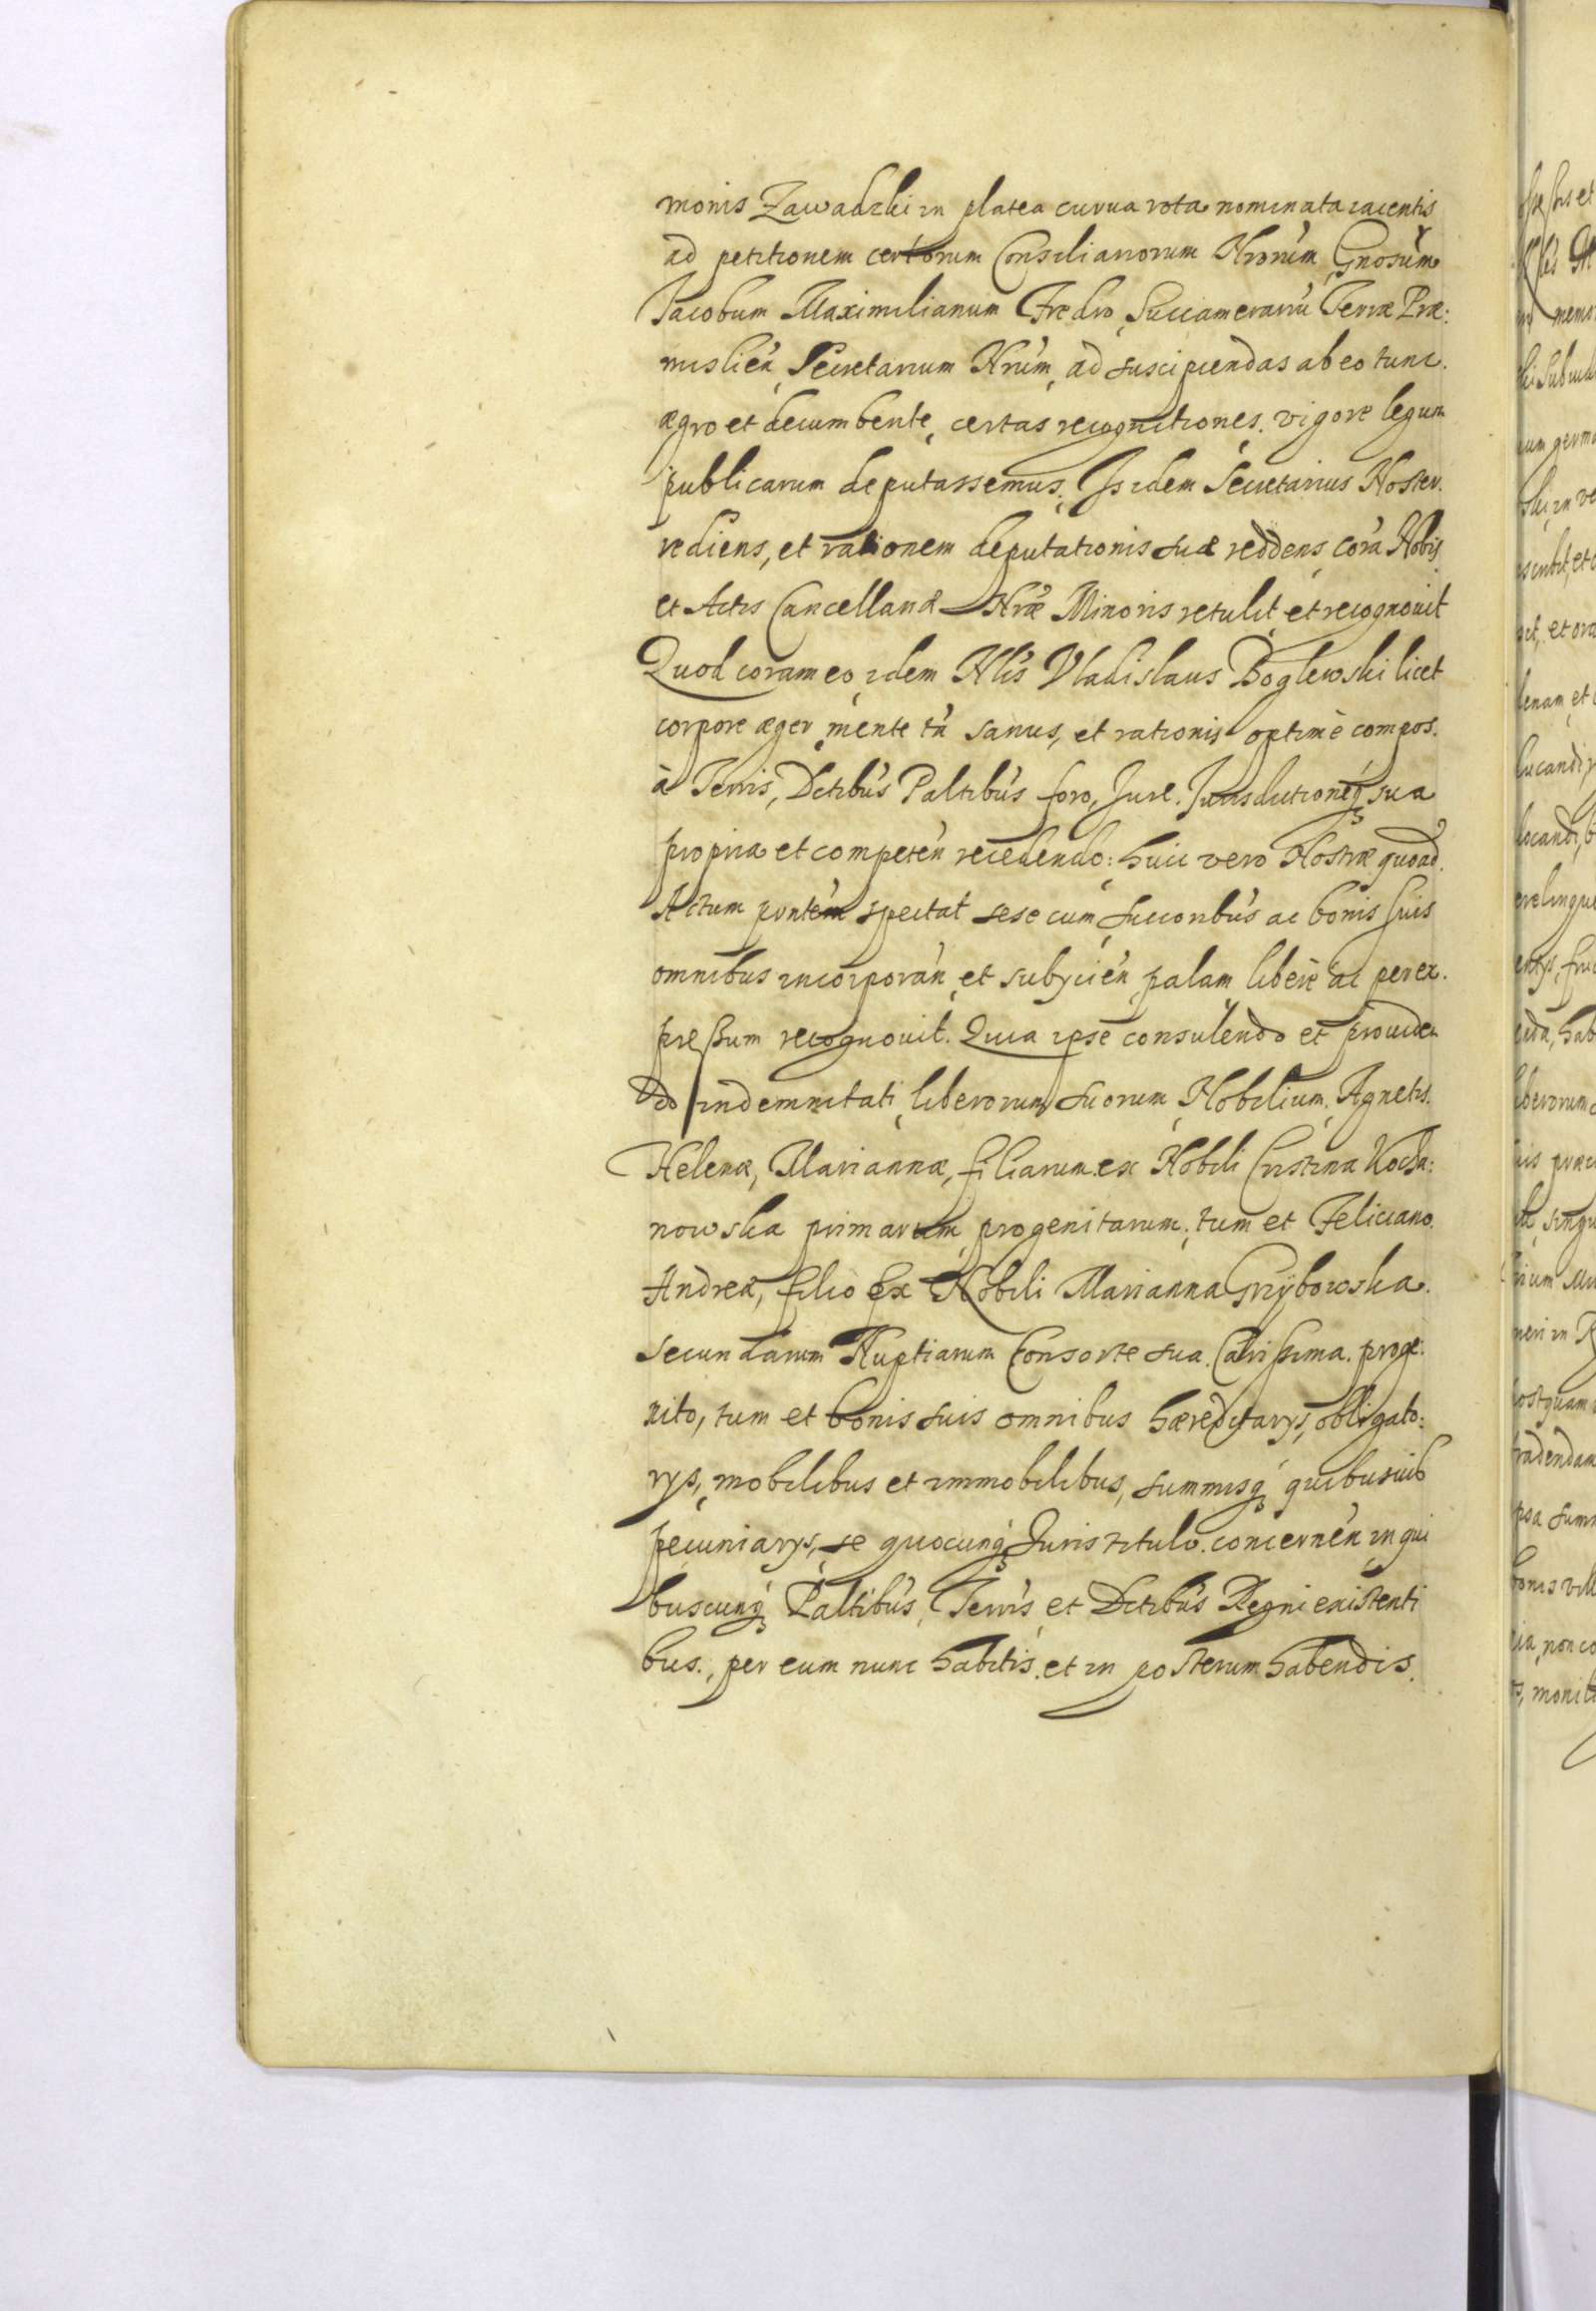 monis Zawadzki in platea curua rota nominata iacentis
ad petitionem certorum Consiliariorum Nrorum, Gnosum
Jacobum Maximilianum Fredro, Succamerariu Terræ Præ:
mislien, Secretarium Nrum, ad suscipiendas ab eo tunc.
ægro et decumbente, certas recognitiones. vigore legum
publicarum deputassemus. Is idem Secretarius Noster.
rediens, et rationem deputationis suæ reddens, corà Nobis
et Actis Cancellariæ Nræ Minoris retulit, et recognouit
Quod coram eo, idem Nlis Vladislaus Boglewski licet
corpore æger, mente tn sanus, et rationis optimè compos.
à Terris, Dctibus Paltibus foro, Jure. Jurisdictioneq sua
propria et competen recedendo: huic vero Nostræ quoad.
Actum pntem spectat sese cum, succoribus ac bonis suis
omnibus incorporan, et subycien, palam liberè ac per ex.
preßum recognouit. Quia ipse consulendo et prouiden
do indemnitati, liberorum suorum, Nobilium, Agnetis.
Helenæ, Mariannæ, filiarum ex Nobili Cristina Kocha:
nowska primarum, progenitarum, tum et Feliciano.
Andreæ, filio Ex Nobili Marianna Grzÿbowska.
Secundarum Nuptiarum Consorte sua. Carißima. proge.
nito, tum et bonis suis omnibus hæreditarys, obligato:
rys, mobilibus et immobilibus, summisq quibusuis
pecuniarys, se quocunq Juris titulo. concernen, in qui
buscunq Paltibus, Terris et Dctibus Regni existenti
bus., per eum nunc habitis. et in posterum habendis.